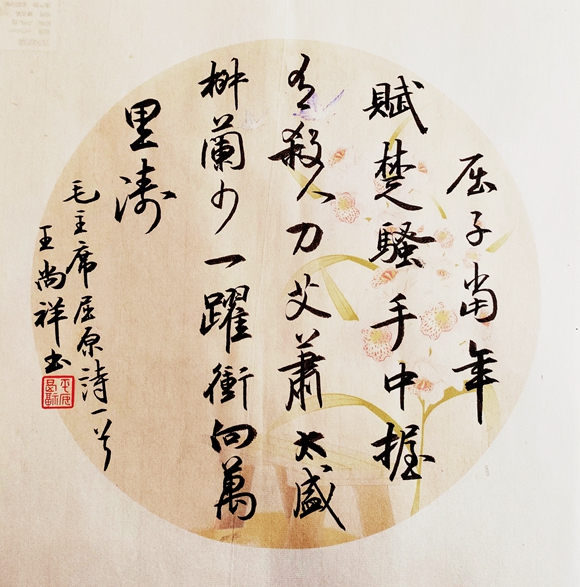 屈子當年
賦楚騷手中握
有殺人刀艾蕭太盛
椒蘭少一躍衝向萬
里濤
毛主席屈原詩一首
王尚祥书